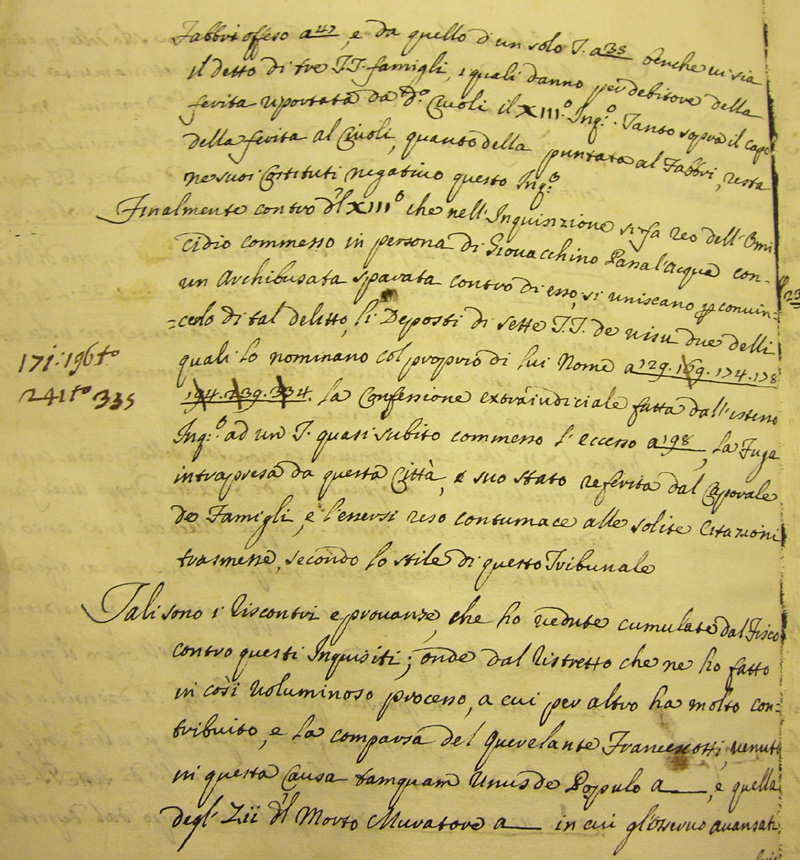 Fabbri offeso a 47, e da quello d'un solo T. a 35 benche vi sia
il detto di tre TT. famigli, i quali danno per debitore della
ferita riportata da do. Civoli il XIII.o Inq.o Tanto sopra il capo
della ferita al Civoli, quanto della puntata al Fabbri, resta
ne suoi Costituti negativo questo Inq.o
Finalmente contro dl XIII.o che nell'Inquisizione si fa reo dell'Omi
cidio commesso in persona di Giovacchino Passal'acqua con
un Archibusata sparata contro di esso, si uniscano p convin=
=cerlo di tal delitto, li Deposti di sette TT. de visu due delli
quali lo nominano col proprio di lui Nome a 129. 169. 174. 178
171. 196 to
194. 239. 334. la Confessione extraiudiciale fatta dall'istesso
241 to 335
Inq.o ad un T. quasi subito commesso l'eccesso a 198, la Fuga
intrapresa da questa Città, e suo stato referita dal Caporale
de Famigli, e l'essersi reso contumace alle solite Citazioni
trasmesse, secondo lo stile di questo Tribunale
Tali sono i riscontri e provanze, che ho vedute cumulate dal Fisco
contro questi Inquisiti; onde dal ristretto che ne ho fatto
in così voluminoso processo, a cui per altro ha molto con=
tribuito, e la comparsa del Querelante Franceschi, venuto
in questa Causa tamquam Unus de Populo a___, e quella
degl' Zii dl Morto Muratore a___ in cui gl'osservo avanzati